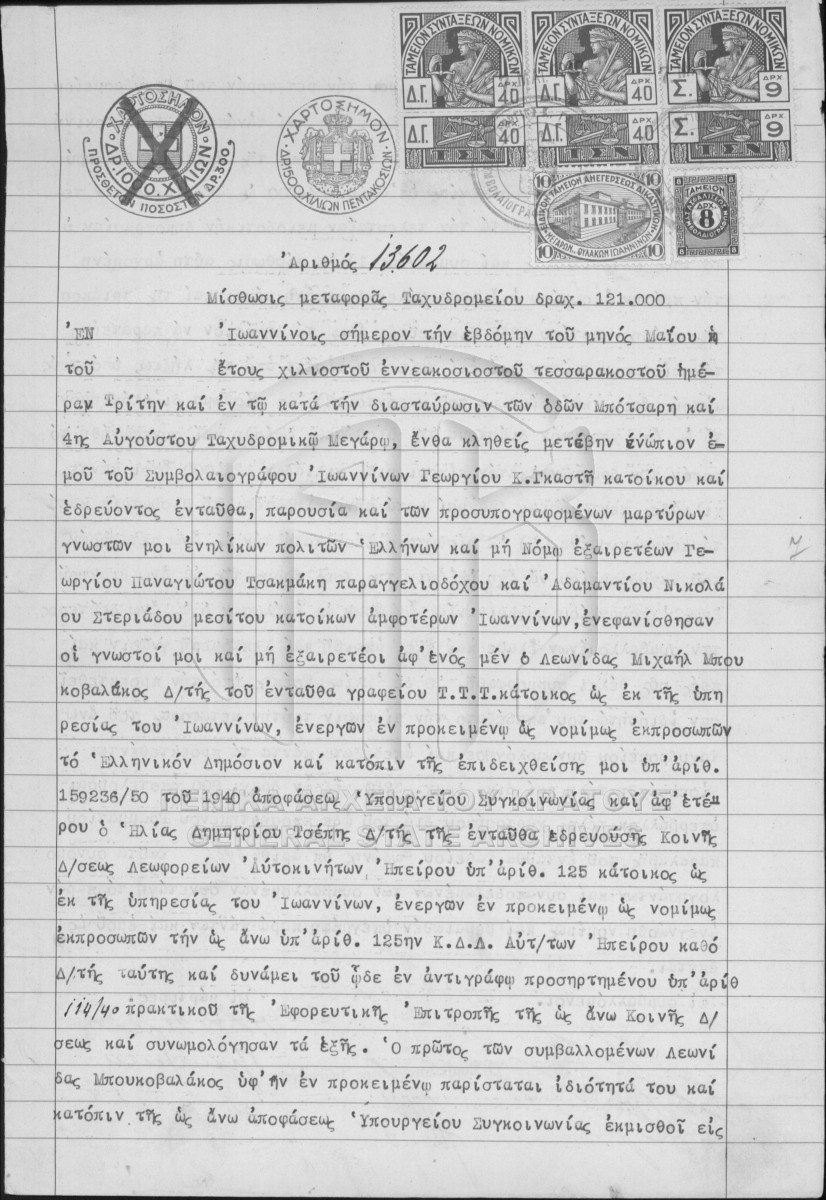 ΤΑΜΕΙΟΝ ΣΥΝΤΑΞΕΩΝ ΝΟΜΙΚΩΝ
Δ.Γ. ΔΡΧ. 40
Δ.Γ. ΔΡΧ. 40
ΤΑΜΕΙΟΝ ΣΥΝΤΑΞΕΩΝ ΝΟΜΙΚΩΝ
Δ.Γ. ΔΡΧ. 40
Δ.Γ. ΔΡΧ. 40
ΤΑΜΕΙΟΝ ΣΥΝΤΑΞΕΩΝ ΝΟΜΙΚΩΝ
Σ. ΔΡΧ 9
Σ. ΔΡΧ 9
ΤΣΝ
ΧΑΡΤΟΣΗΜΟΝ
ΔΡ. 1000. ΧΙΛΙΩΝ
ΠΡΟΣΘΕΤΟΝ ΠΟΣΟΣΤΟΝ ΔΡ. 300
ΧΑΡΤΟΣΗΜΟΝ
ΔΡ. 1500 ΧΙΛΙΩΝ ΠΕΝΤΑΚΟΣΙΩΝ
10 10
ΕΙΔΙΚΟΝ ΤΑΜΕΙΟΝ ΑΝΕΓΕΡΣΕΩΣ
ΦΥΛΑΚΩΝ ΙΩΑΝΝΙΝΩΝ
10 10
ΤΑΜΕΙΟΝ
ΔΡΧ
8
Ἀριθμός 13.602
Μίσθωσις μεταφορᾶς Ταχυδρομείου δραχ. 121.000
ἘΝ Ἰωαννίνοις σήμερον τήν ἑβδόμην τοῦ μηνός Μαΐου
τοῦ ἔτους χιλιοστοῦ ἐννεακοσιοστοῦ τεσσαρακοστοῦ ἡμέ-
ραν Τρίτην καί ἐν τῷ κατά τήν διασταύρωσιν τῶν ὁδῶν Μπότσαρη καί
4ης Αὐγούστου Ταχυδρομικῷ Μεγάρῳ, ἔνθα κληθείς μετέβην ἐνώπιον ἐ-
μοῦ τοῦ Συμβολαιογράφου Ἰωαννίνων Γεωργίου Κ.Γκαστῆ κατοίκου καί
ἑδρεύοντος ἐνταῦθα, παρουσίᾳ καί τῶν προσυπογραφομένων μαρτύρων
γνωστῶν μοι ἐνηλίκων πολιτῶν Ἑλλήνων καί μή Νόμῳ ἐξαιρετέων Γε-
ωργίου Παναγιώτου Τσακμάκη παραγγελιοδόχου καί Ἀδαμαντίου Νικολά
ου Στεριάδου μεσίτου κατοίκων ἀμφοτέρων Ἰωαννίνων, ἐνεφανίσθησαν
οἱ γνωστοί μοι καί μή ἐξαιρετέοι ἀφ' ἑνός μέν ὁ Λεωνίδας Μιχαήλ Μπου
κοβαλάκος Δ/τής τοῦ ἐνταῦθα γραφείου Τ.Τ.Τ.κάτοικος ὡς ἐκ τῆς ὑπη
ρεσίας του Ἰωαννίνων, ἐνεργῶν ἐν προκειμένῳ ὡς νομίμως ἐκπροσωπῶν
τό Ἑλληνικόν Δημόσιον καί κατόπιν τῆς ἐπιδειχθείσης μοι ὑπ' ἀρίθ.
159236/50 τοῦ 1940 ἀποφάσεως Ὑπουργείου Συγκοινωνίας καί ἀφ' ἑτέ-
ΓΕΝΙΚΑ ΑΡΧΕΙΑ ΤΟΥ ΚΡΑΤΟΥΣ
ρου ὁ Ἠλίας Δημητρίου Τσέπης Δ/τής τῆς ἐνταῦθα ἑδρευούσης Κοινῆς
GENERAL STATE ARCHIVES
Δ/σεως Λεωφορείων Αὐτοκινήτων Ἠπείρου ὑπ' ἀρίθ. 125 κάτοικος ὡς
ἐκ τῆς ὑπηρεσίας του Ἰωαννίνων, ἐνεργῶν ἐν προκειμένῳ ὡς νομίμως
ἐκπροσωπῶν τήν ὡς ἄνω ὑπ' ἀρίθ. 125ην Κ.Δ.Λ. Αὐτ/των Ἠπείρου καθό
Δ/τής ταύτης καί δυνάμει τοῦ ᾧδε ἐν ἀντιγράφῳ προσηρτημένου ὑπ' ἀρίθ
114/40 πρακτικοῦ τῆς Ἐφορευτικῆς Ἐπιτροπῆς τῆς ὡς ἄνω Κοινῆς Δ/
σεως καί συνωμολόγησαν τά ἑξῆς. Ὁ πρῶτος τῶν συμβαλλομένων Λεωνί
δας Μπουκοβαλάκος ὑφ' ἥν ἐν προκειμένῳ παρίσταται ἰδιότητά του καί
κατόπιν τῆς ὡς ἄνω ἀποφάσεως Ὑπουργείου Συγκοινωνίας ἐκμισθοῖ εἰς